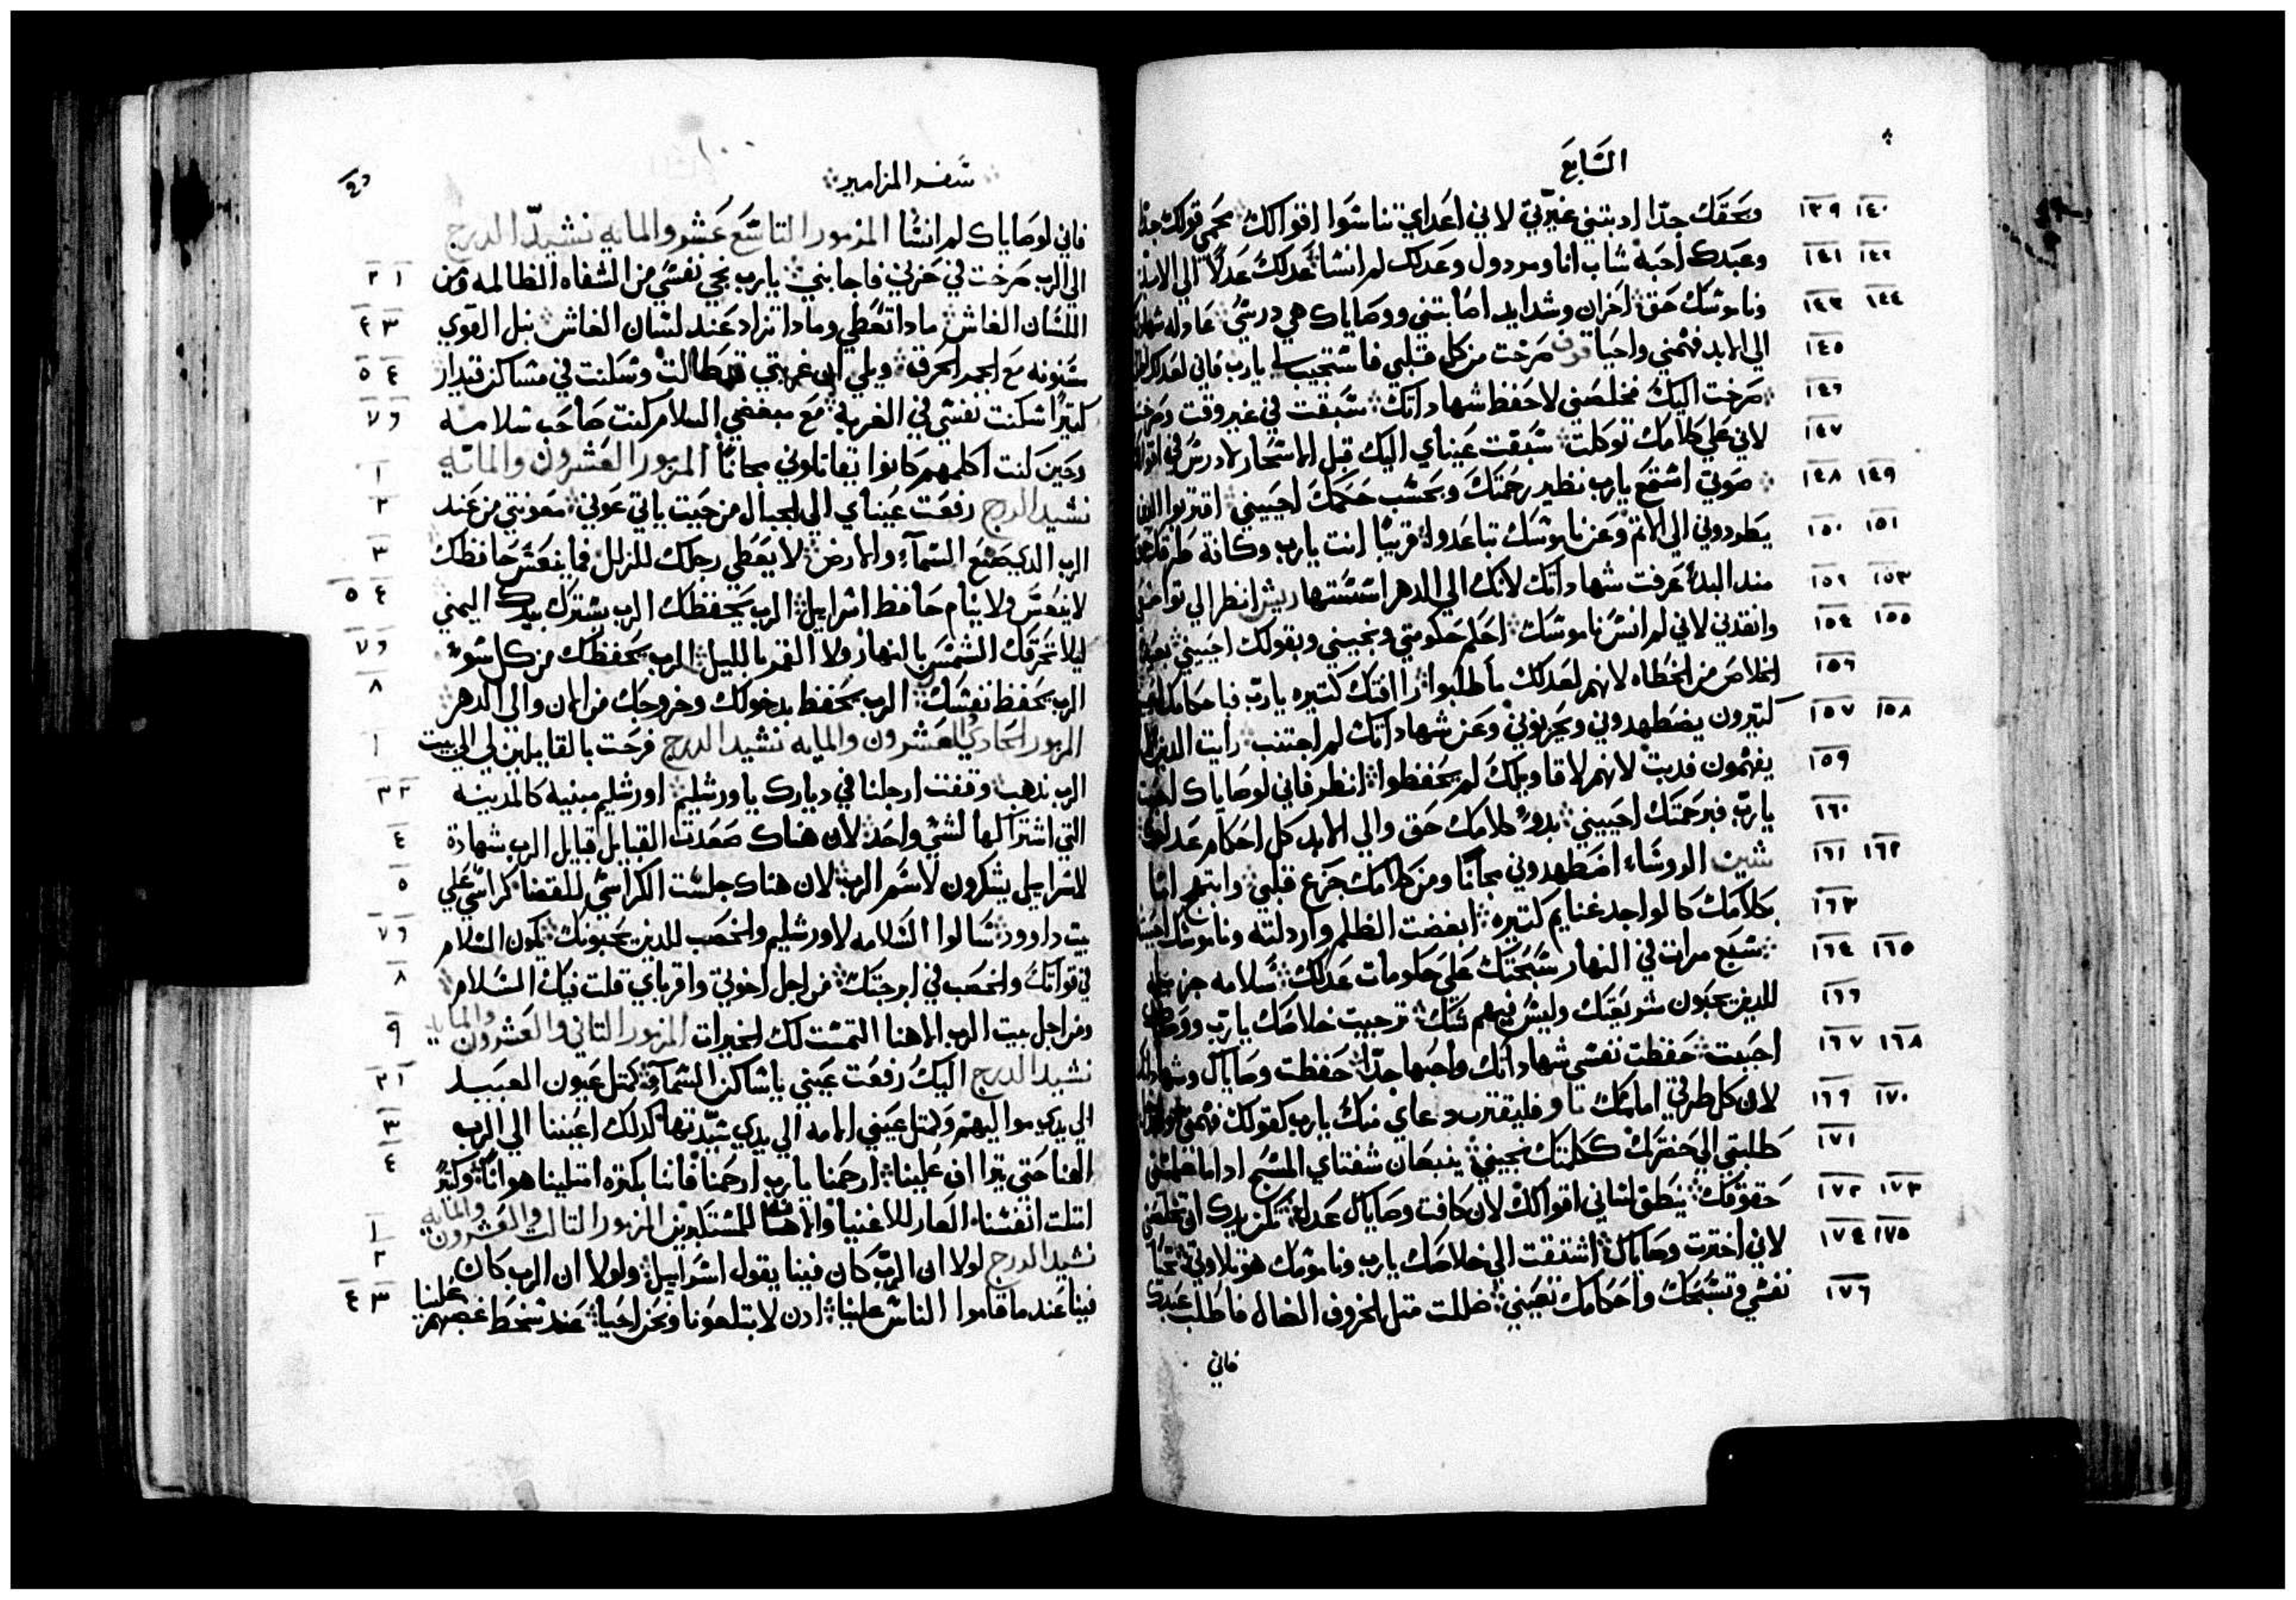 السابع
١٣٩ ١٤٠ وبحقك جدا ادبتني غيرتي لاني اعداي تناسوا اقوالك محمي قولك جدا
١٤١ ١٤٢ وعبدك احبه شاب انا ومردول وعدلك لم انسا عدلك عدلا الي الابد
١٤٣ ١٤٤ وناموسك حق احزان وشدايد اصابتني ووصاياك هي درسي عادله شهاداتك
١٤٥ الي الابد فهمني واحيا قوف صرخت من كل قلبي فاستجيب لي يارب فاني لعدلك
١٤٦ صرخت اليك فخلصني لاحفظ شهاداتك سبقت في غير وقت وصرخت
١٤٧ لاني علي كلامك توكلت سبقت عيناي اليك قبل الاسحار لادرس في اقوالك
١٤٨ ١٤٩ صوتي استمع يارب نظير رحمتك وبحسب حكمك احييني اقتربوا الذين
١٥٠ ١٥١ يطردوني الي الاثم وعن ناموسك تباعدوا قريبا انت يارب وكافة طرقك حق
١٥٢ ١٥٣ مند البدا عرفت شهاداتك لانك الي الدهر اسستها ريش انظر الي تواضعي
١٥٤ ١٥٥ وانقدني لاني لم انس ناموسك احكم حكومتي ونجيني وبقولك احييني بعيد
١٥٦ الخلاص من الخطاه لانهم لعدلك ما طلبوا راافتك كتيره يارب فباحكامك احييني
١٥٧ ١٥٨ كتيرون يضطهدوني ويحزنوني وعن شهاداتك لم اجتنب رايت الذين لا
١٥٩ يفهمون فدبت لانهم لاقاويلك لم يحفظوا انظر فاني لوصاياك احببت
١٦٠ يارب فبرحمتك احييني بدو كلامك حق والي الابد كل احكام عدلك
١٦١ ١٦٢ شين الروساء اضطهدوني مجانا ومن كلامك جزع قلبي وابتهج انا
١٦٣ بكلامك كالواجد غنايم كتيره ابغضت الظلم واردلته وناموسك احببت
١٦٤ ١٦٥ سبع مرات في النهار سبحتك علي حكومات عدلك سلامه جزيله
١٦٦ للدين يحبون شريعتك وليس فيهم شك ترجيت خلاصك يارب ووصاياك
١٦٧ ١٦٨ احببت حفظت نفسي شهاداتك واحبها جدا حفظت وصاياك وشهاداتك
١٦٩ ١٧٠ لان كل طرقي امامك تاو فليقترب دعاي منك يارب كقولك فهمني
١٧١ طلبتي الي حضرتك ككلمتك نجيني ينبعان شفتاي المسبح ادا ما علمتني
١٧٢ ١٧٣ حقوقك ينطق لساني اقوالك لان كافت وصاياك عدله تكن يدك ان تخلصني
١٧٤ ١٧٥ لاني اخترت وصاياك اشتقت الي خلاصك يارب وناموسك هو تلاوتي تحيا
١٧٦ نفسي وتسبحك واحكامك تعيني ضللت متل الخروف الضال فاطلب عبدك
فاني
سفر المزامير
فاني لوصاياك لم انسا المزمور التاسع عشر والمايه نشيد الدرج
١ ٢ الي الرب صرخت في حزني فاجابني يارب نجي نفسي من الشفاه الظالمه ومن
٣ ٤ اللسان الغاش مادا تعطي ومادا تزاد عند لسان الغاش نبل القوي
٤ ٥ مسنونه مع الجمر الحرق ويلي ان غربتي قد طالت وسكنت في مساكن قيدار
٦ ٧ كتيرا سكنت نفسي في الغربه مع مبغضي السلام كنت صاحب سلامه
١ وحين كنت اكلمهم كانوا يقاتلوني مجانا المزمور العشرون والمائة
٢ نشيد الدرج رفعت عيناي الي الجبال من حيت ياتي عوني معونتي من عند
٣ الرب الدي صنع السمآء والارض لا يعطي رجلك للزلل فما ينعس حافظك
٤ ٥ لا ينعس ولا ينام حافظ اسراييل الرب يحفظك الرب يسترك بيدك اليمني
٦ ٧ ليلا تحرقك الشمس بالنهار ولا القمر بالليل الرب يحفظك من كل سوء
٨ الرب يحفظ نفسك الرب يحفظ بدخولك وخروجك من الان والي الدهر
١ المزمور الحادي العشرون والمايه نشيد الدرج فرحت بالقايلين لي الي بيت
٢ ٣ الرب ندهب وقفت ارجلنا في ديارك ياورشليم اورشليم مبنيه كالمدينه
٤ التي اشتراكها لشي واحد لان هناك صعدت القبايل قبايل الرب شهادة
٥ لاسراييل يشكرون لاسم الرب لان هناك جلست الكراسي للقضا كراسي علي
٦ ٧ بيت داوود سالوا السلامه لاورشليم والخصب للدين يحبونك يكون السلام
٨ في قواتك والخصب في ابرجتك من اجل اخوتي واقرباي قلت فيك السلام
٩ ومن اجل بيت الرب الاهنا التمست لك الخيرات المزمور التاني والعشرون والمايه
١ ٢ نشيد الدرج اليك رفعت عيني ياساكن السمآء كمتل عيون العبيد
٣ الي يدي مواليهم وكمتل عيني الامه الي يدي سيدتها كدلك اعيننا الي الرب
٤ الهنا حتي يتراف علينا ارحمنا يارب ارحمنا فاننا بكتره امتلينا هوانا وكتر
١ امتلت انفسنا العار للاغنيا والاهانه للمستكبرين المزمور التالت والعشرون والمايه
٢ نشيد الدرج لولا ان الرب كان فينا يقول اسراييل ولولا ان الرب كان
٣ ٤ فينا عند ما قاموا الناس علينا ادن لابتلعونا ونحن احيا عند سخط غضبهم علينا